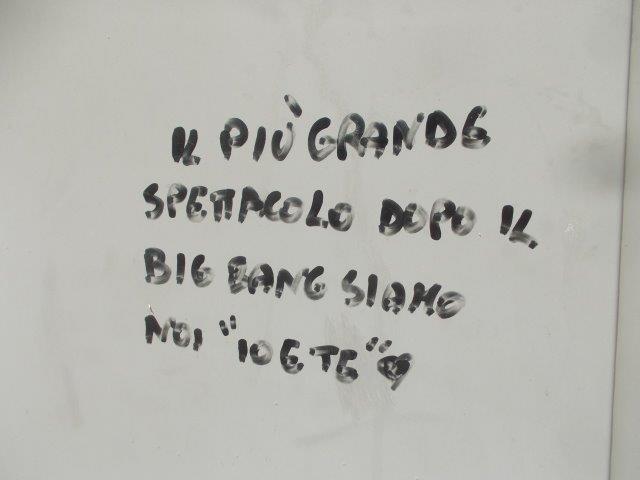 IL PIÙ GRANDE
SPETTACOLO DOPO IL
BIG BANG SIAMO
NOI "IO E TE" ♥